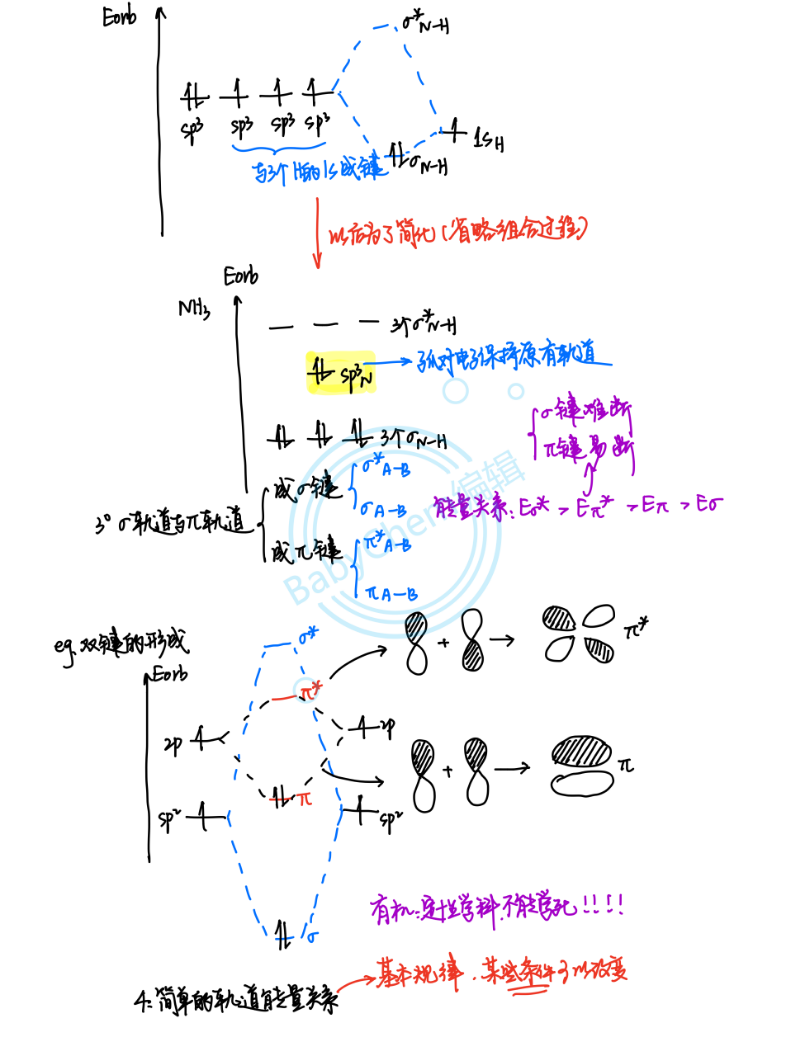 Eorb
σ*N-H
sp³ sp³ sp³ sp³
1sH
σN-H
与3个H的1s成键
以后为了简化(省略组合过程)
Eorb
NH₃
3个σ*N-H
sp³N → 孤对电子保持原有轨道
3个σN-H
σ键难断
π键易断
能量关系: Eσ* > Eπ* > Eπ > Eσ
3° σ轨道与π轨道
成σ键
σ*A-B
σA-B
成π键
π*A-B
πA-B
BabyChen编辑
eg. 双键的形成
Eorb
σ*
π*
2p
2p
π
sp²
sp²
σ
+ → π*
+ → π
有机:定性学科,不能学死!!!!
4. 简单的轨道能量关系 → 基本规律. 某些条件可以改变